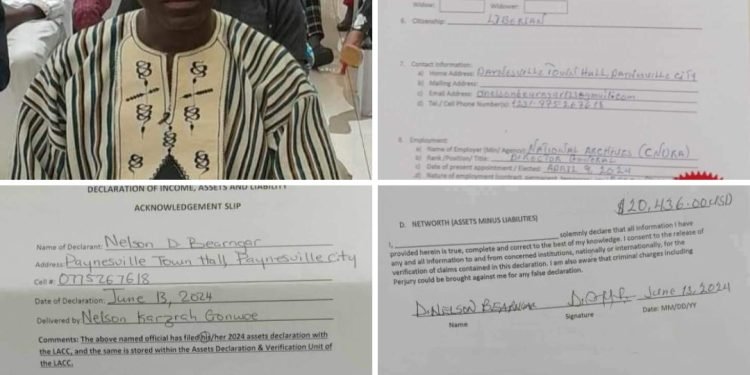 Widow:
Widower:
6. Citizenship: LIBERIAN
7. Contact Information:
a) Home Address: Paynesville Town Hall, Paynesville City
b) Mailing Address:
c) Email Address:
d) Tel./ Cell Phone Number(s)
8. Employment:
a) Name of Employer (Min/ Agency) NATIONAL ARCHIVES (CNDRA)
b) Rank /Position/ Title: DIRECTOR GENERAL
c) Date of present appointment / Elected: APRIL 9, 2024
d) Nature of employment
DECLARATION OF INCOME, ASSETS AND LIABILITY
ACKNOWLEDGEMENT SLIP
Name of Declarant: Nelson D. Bearngar
Address: Paynesville Town Hall, Paynesville City
Cell #: 0775267618
Date of Declaration: June 13, 2024
Delivered by: Nelson Karzrah Gonwoe
Comments: The above named official has filed his/her 2024 assets declaration with
the LACC, and the same is stored within the Assets Declaration & Verification Unit of
the LACC.
$20,436.00USD
D. NETWORTH (ASSETS MINUS LIABILITIES)
I, solemnly declare that all information I have
provided herein is true, complete and correct to the best of my knowledge. I consent to the release of
any and all information to and from concerned institutions, nationally or internationally, for the
verification of claims contained in this declaration. I am also aware that criminal charges including
Perjury could be brought against me for any false declaration.
D. NELSON BEARNGAR June 13, 2024
Name Signature Date: MM/DD/YY